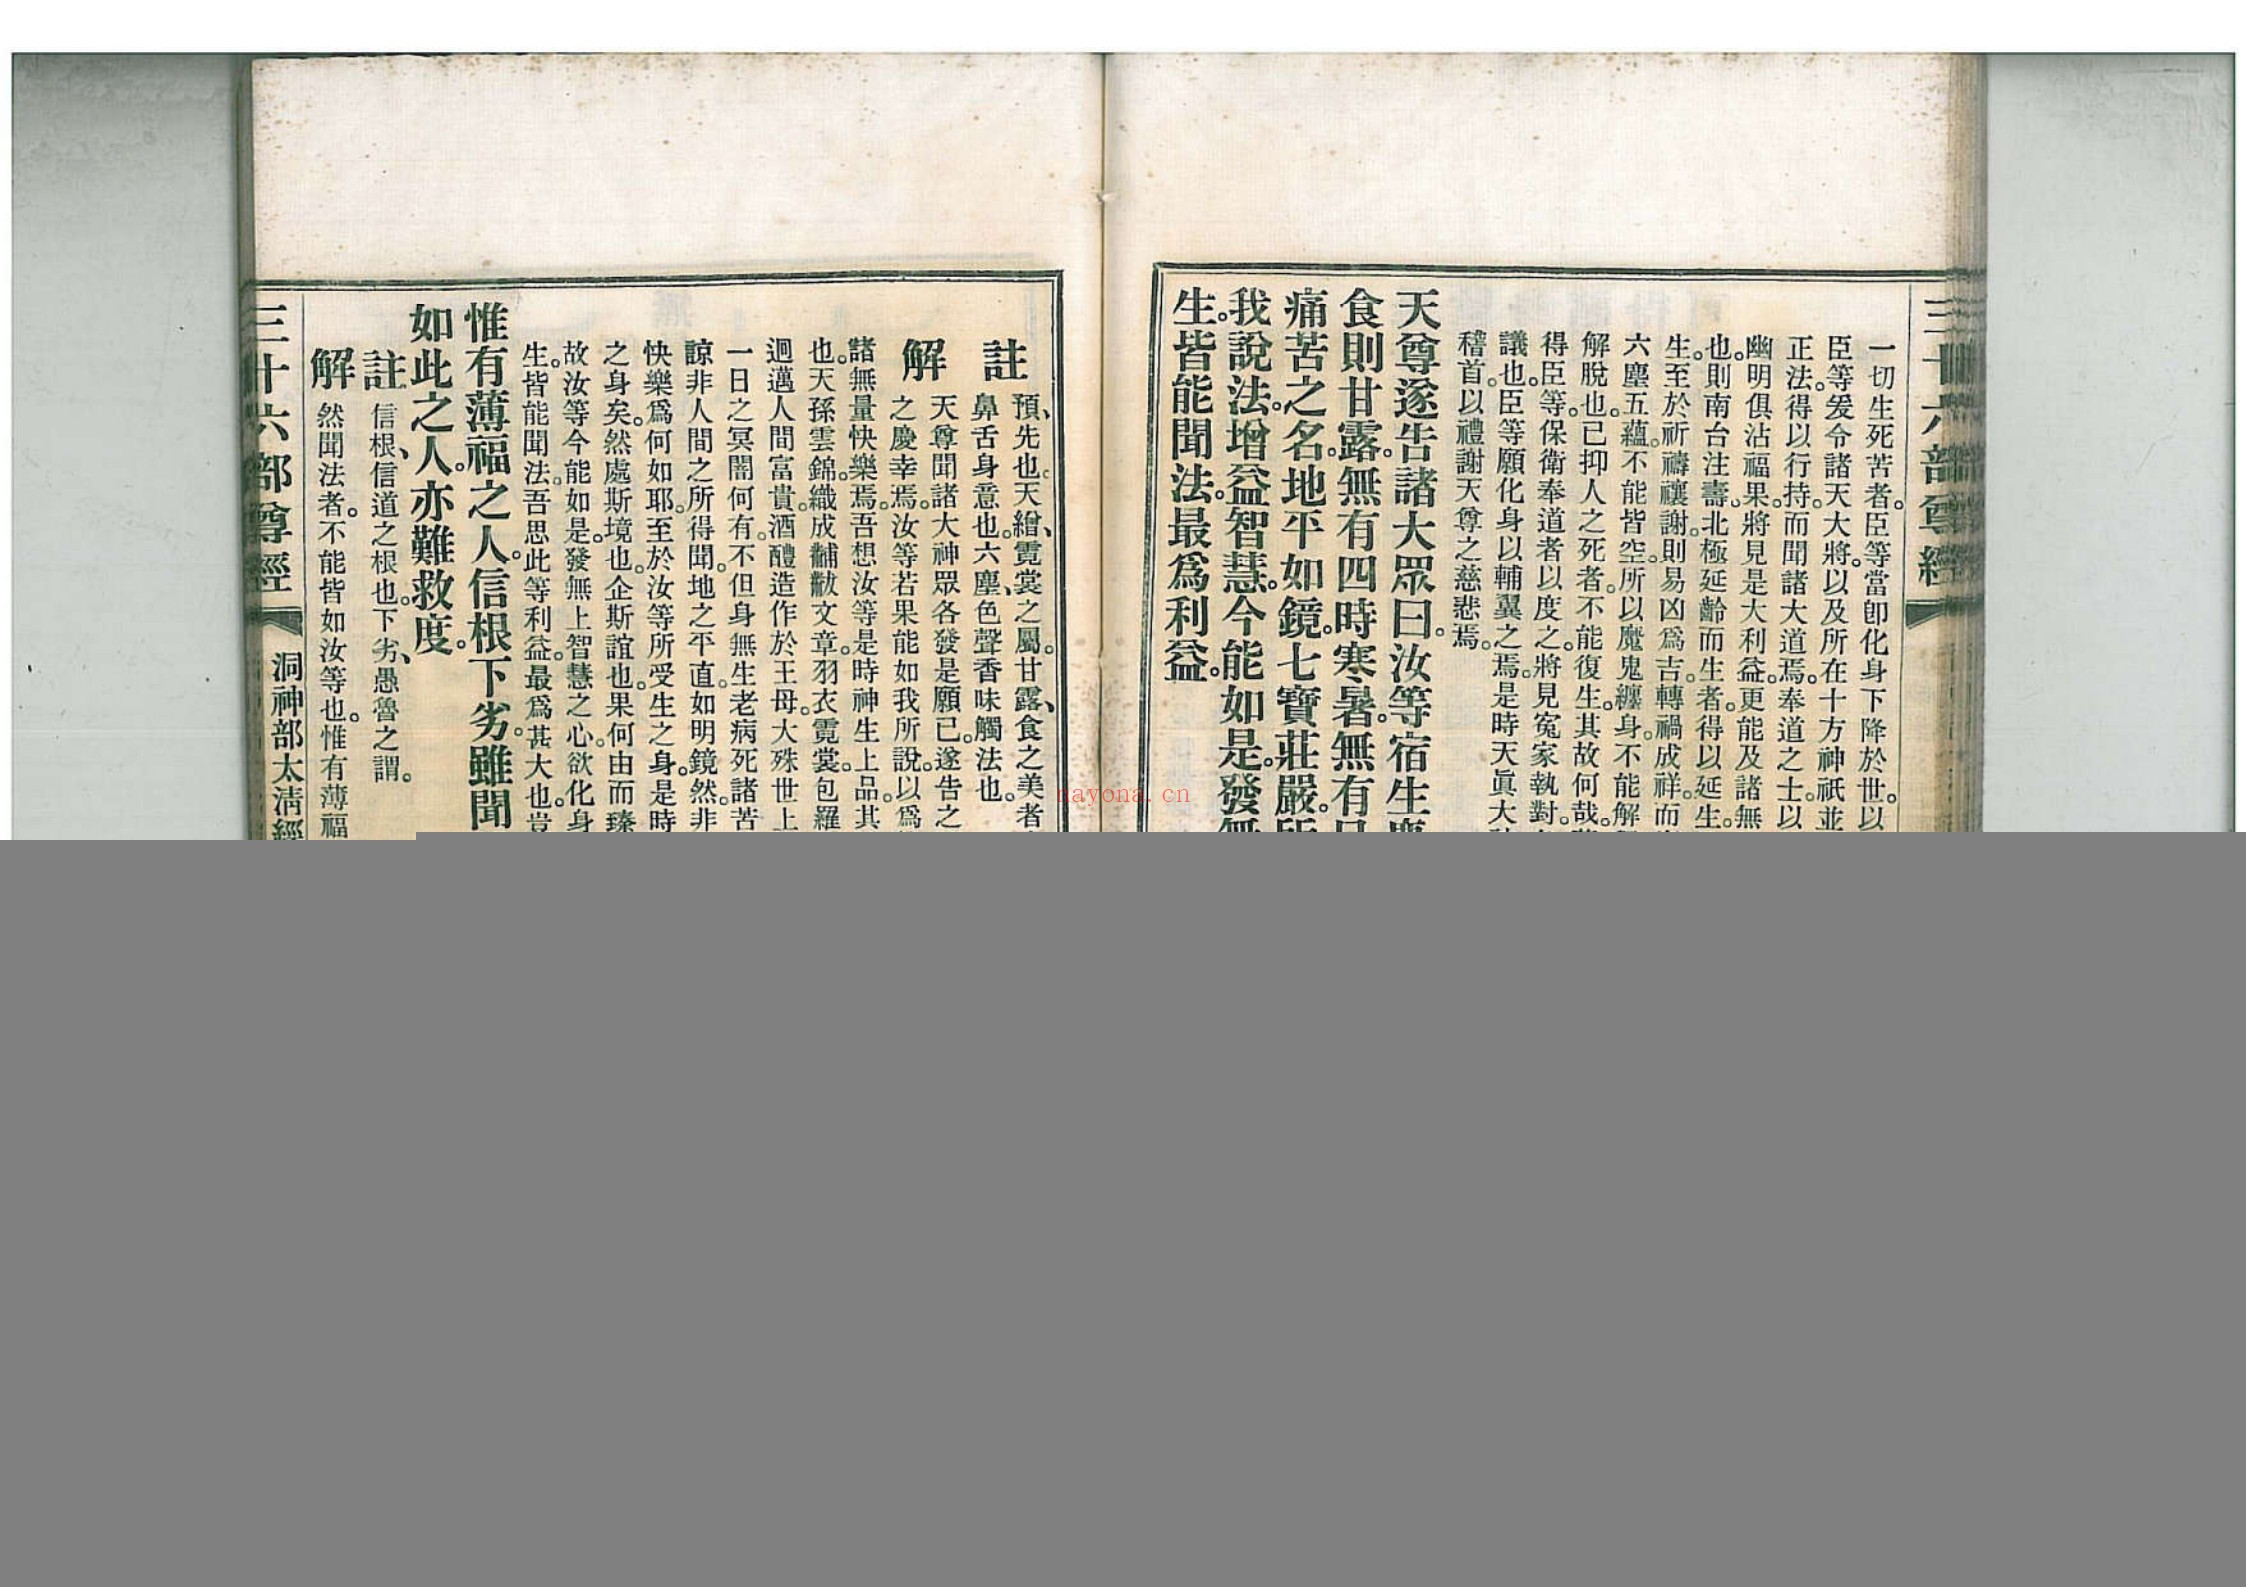 三十六部尊經
一切生死苦者。臣等當卽化身下降於世。以
臣等爰令諸天大將。以及所在十方神祇並
正法。得以行持。而聞諸大道焉。奉道之士。以
幽明俱沾福果。將見是大利益。更能及諸無
也。則南台注壽。北極延齡而生者。得以延生。
生。至於祈禱禳謝。則易凶爲吉。轉禍成祥。而
六塵五蘊。不能皆空。所以魔鬼纏身。不能解
解脫也。已抑人之死者。不能復生。其故何哉。
得。臣等。保衛奉道者以度之。將見冤家執對。
議也。臣等願化身以輔翼之焉。是時天眞大
稽首。以禮謝天尊之慈悲焉。
天尊遂告諸大眾曰。汝等宿生
食則甘露。無有四時寒暑。無有
痛苦之名。地平如鏡。七寶莊嚴。
我說法。增益智慧。今能如是。發無
生。皆能聞法。最爲利益。
註 預、先也。天繒、霓裳之屬。甘露、食之美者
鼻舌身意也。六塵、色聲香味觸法也。
解 天尊聞諸大神眾各發是願已。遂告之
之慶幸焉。汝等若果能如我所說。以爲
諸無量快樂焉。吾想汝等是時神生上品。其
也。天孫雲錦。織成黼黻文章。羽衣霓裳。包羅
迥邁人間富貴。酒醴造作於王母。大殊世上
一日之冥闇何有。不但身無生老病死諸苦
諒非人間之所得聞。地之平直。如明鏡然。非
快樂爲何如耶。至於汝等所受生之身。是時
之身矣。然處斯境也。企斯誼也。果何由而臻
故汝等今能如是。發無上智慧之心。欲化身
生。皆能聞法。吾思此等利益。最爲甚大也。豈
惟有薄福之人。信根下劣。雖聞
如此之人。亦難救度。
註 信根、信道之根也。下劣、愚魯之謂。
解 然聞法者。不能皆如汝等也。惟有薄福
三十六部尊經 洞神部太淸經
nayona.cn